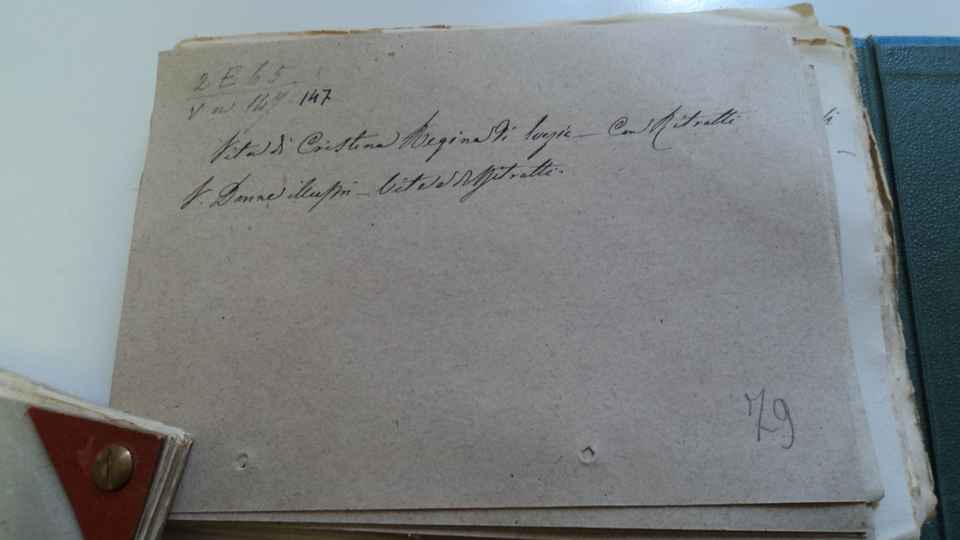 2 E b 5
V n 147 147
Vita di Cristina Regina di Svezia – Con Ritratti
V. Donne illustri – Vite e Ritratti.
79